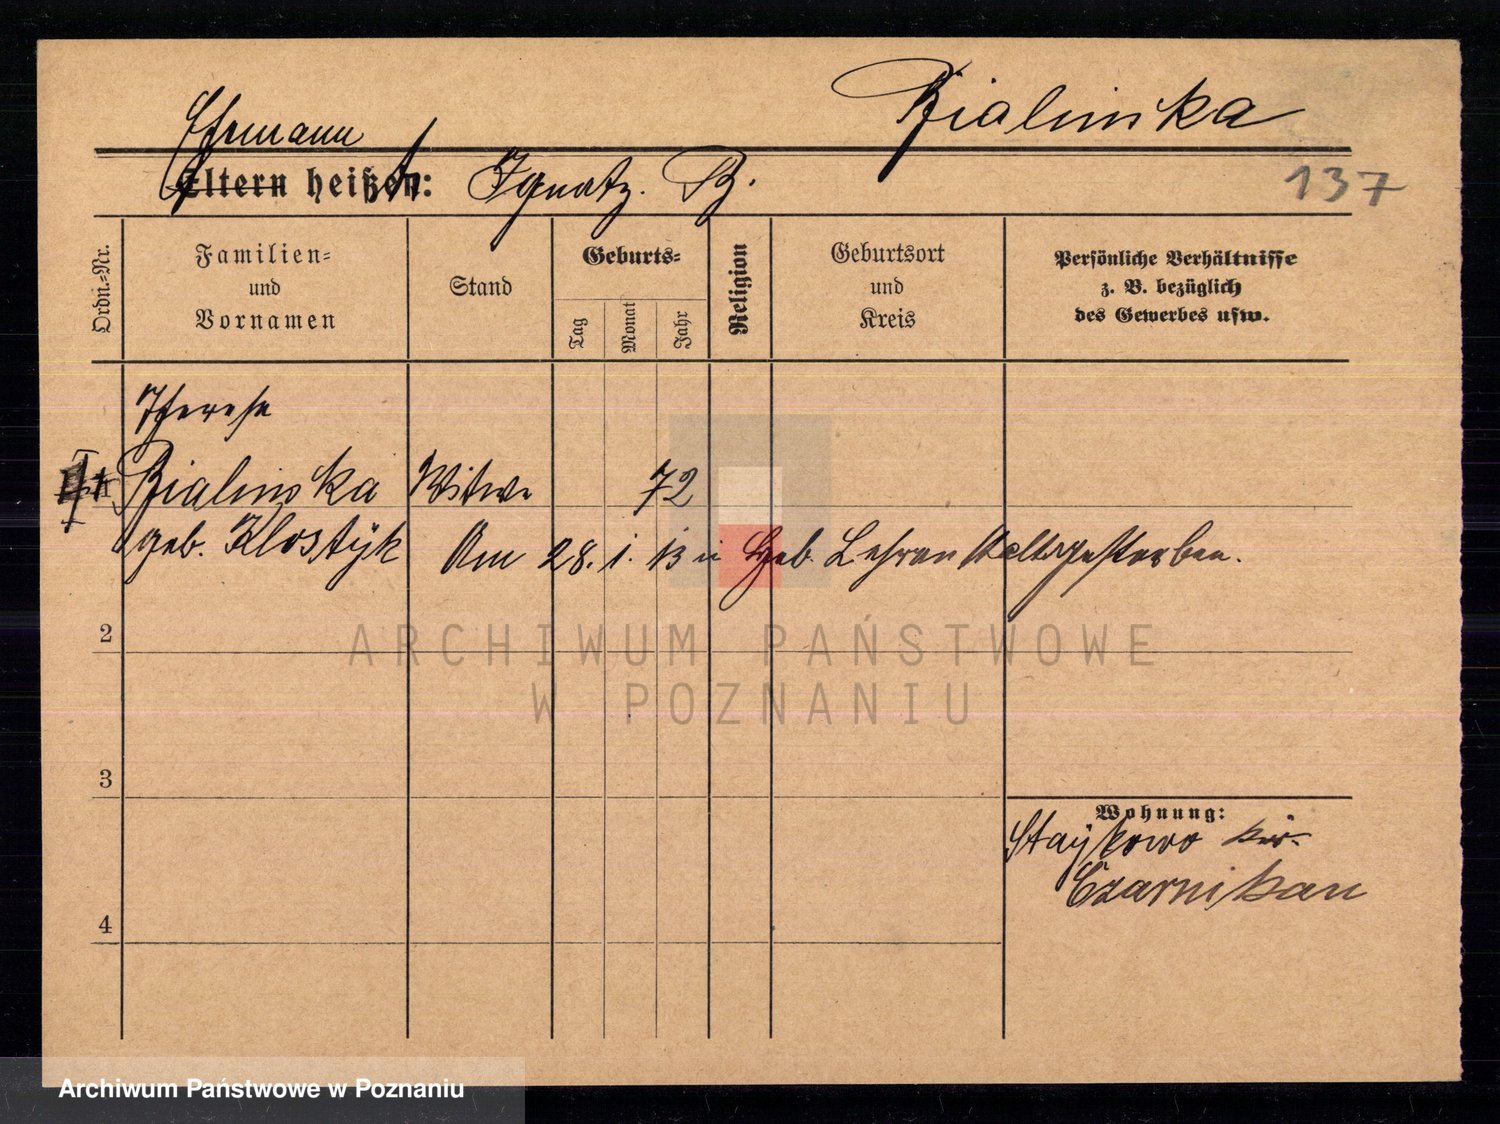 Bialinska
Ehemann
Eltern heißen: Ignatz. B.
137
Ordn.-Nr.
Familien-
und
Vornamen
Stand
Geburts-
Tag
Monat
Jahr
Religion
Geburtsort
und
Kreis
Persönliche Verhältnisse
z. B. bezüglich
des Gewerbes usw.
Therese
1 Bialinska Witwe 72
geb. Klostyk Am 28. 1. 13 i Heb. Lehranstalt gestorben.
2
ARCHIWUM PAŃSTWOWE
W POZNANIU
3
Wohnung:
Stajkowo Kr.
Czarnikau
4
Archiwum Państwowe w Poznaniu